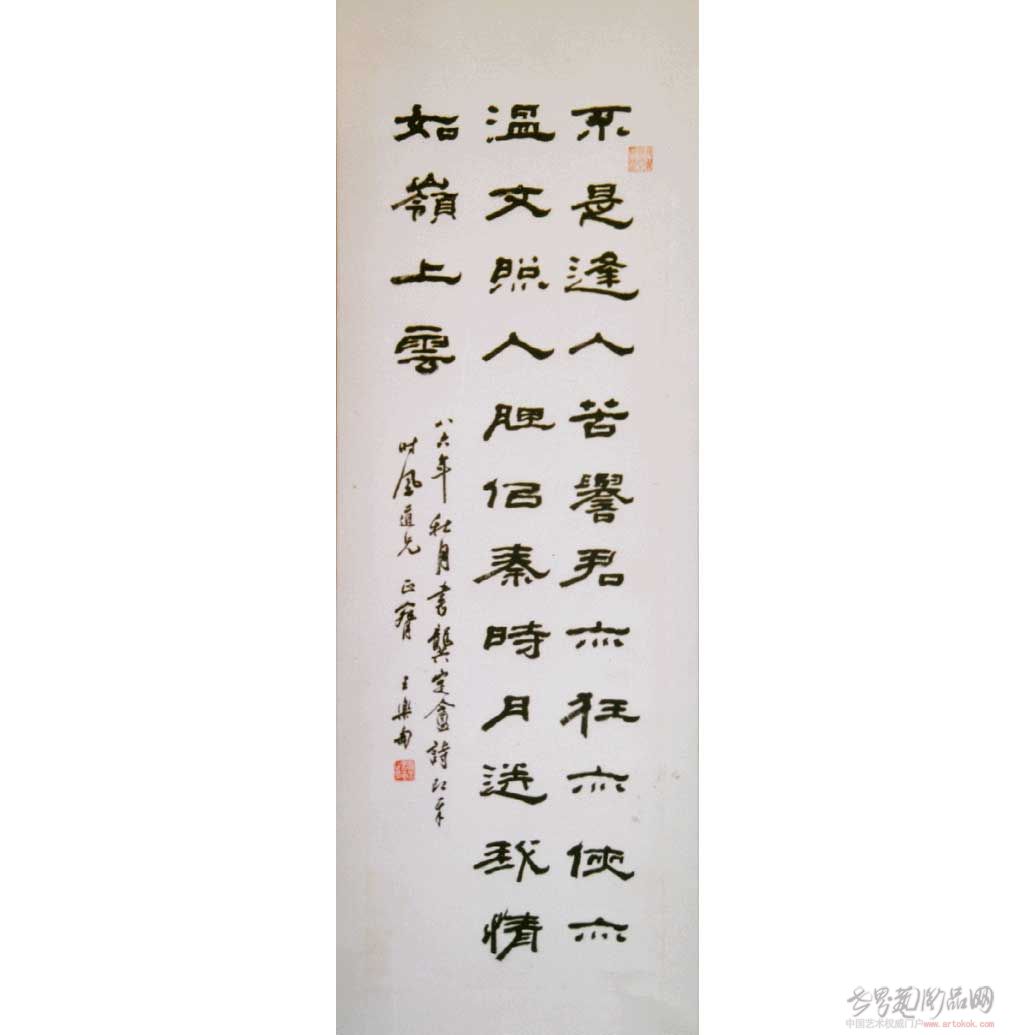 不是逢人苦譽君亦狂亦俠亦
溫文照人胆侣秦時月送我情
如嶺上雲
八六年秋月書龔定盦詩以奉
时風道兄正臂 王樂甫
世界艺术品网
中国艺术权威门户www.artokok.com